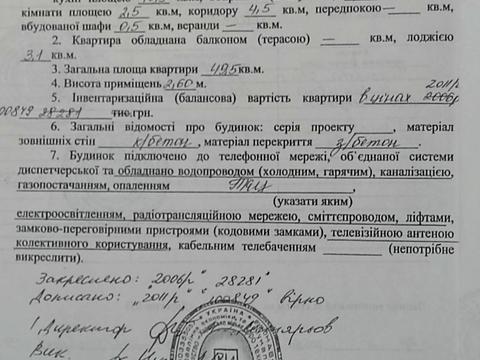 кімнати площею 2,5 кв.м, коридору 4,5 кв.м, передпокою — кв.м,
вбудованої шафи 0,5 кв.м, веранди — кв.м.
2. Квартира обладнана балконом (терасою) — кв.м, лоджією
3,1 кв.м.
3. Загальна площа квартири 49,5 кв.м.
4. Висота приміщень 2,60 м. 2011р
5. Інвентаризаційна (балансова) вартість квартири в цінах 2006р
100849 28281 тис.грн.
6. Загальні відомості про будинок: серія проекту, матеріал
зовнішніх стін к/бетон, матеріал перекриття з/бетон.
7. Будинок підключено до телефонної мережі, об'єднаної системи
диспетчерської та обладнано водопроводом (холодним, гарячим), каналізацією,
газопостачанням, опаленням ТЕЦ,
(указати яким)
електроосвітленням, радіотрансляційною мережею, сміттєпроводом, ліфтами,
замково-переговірними пристроями (кодовими замками), телевізійною антеною
колективного користування, кабельним телебаченням (непотрібне
викреслити).
Закреслено: "2006р" 28281"
Дописано: "2011р" "100849" вірно
Директор
Вик.
УКРАЇНА